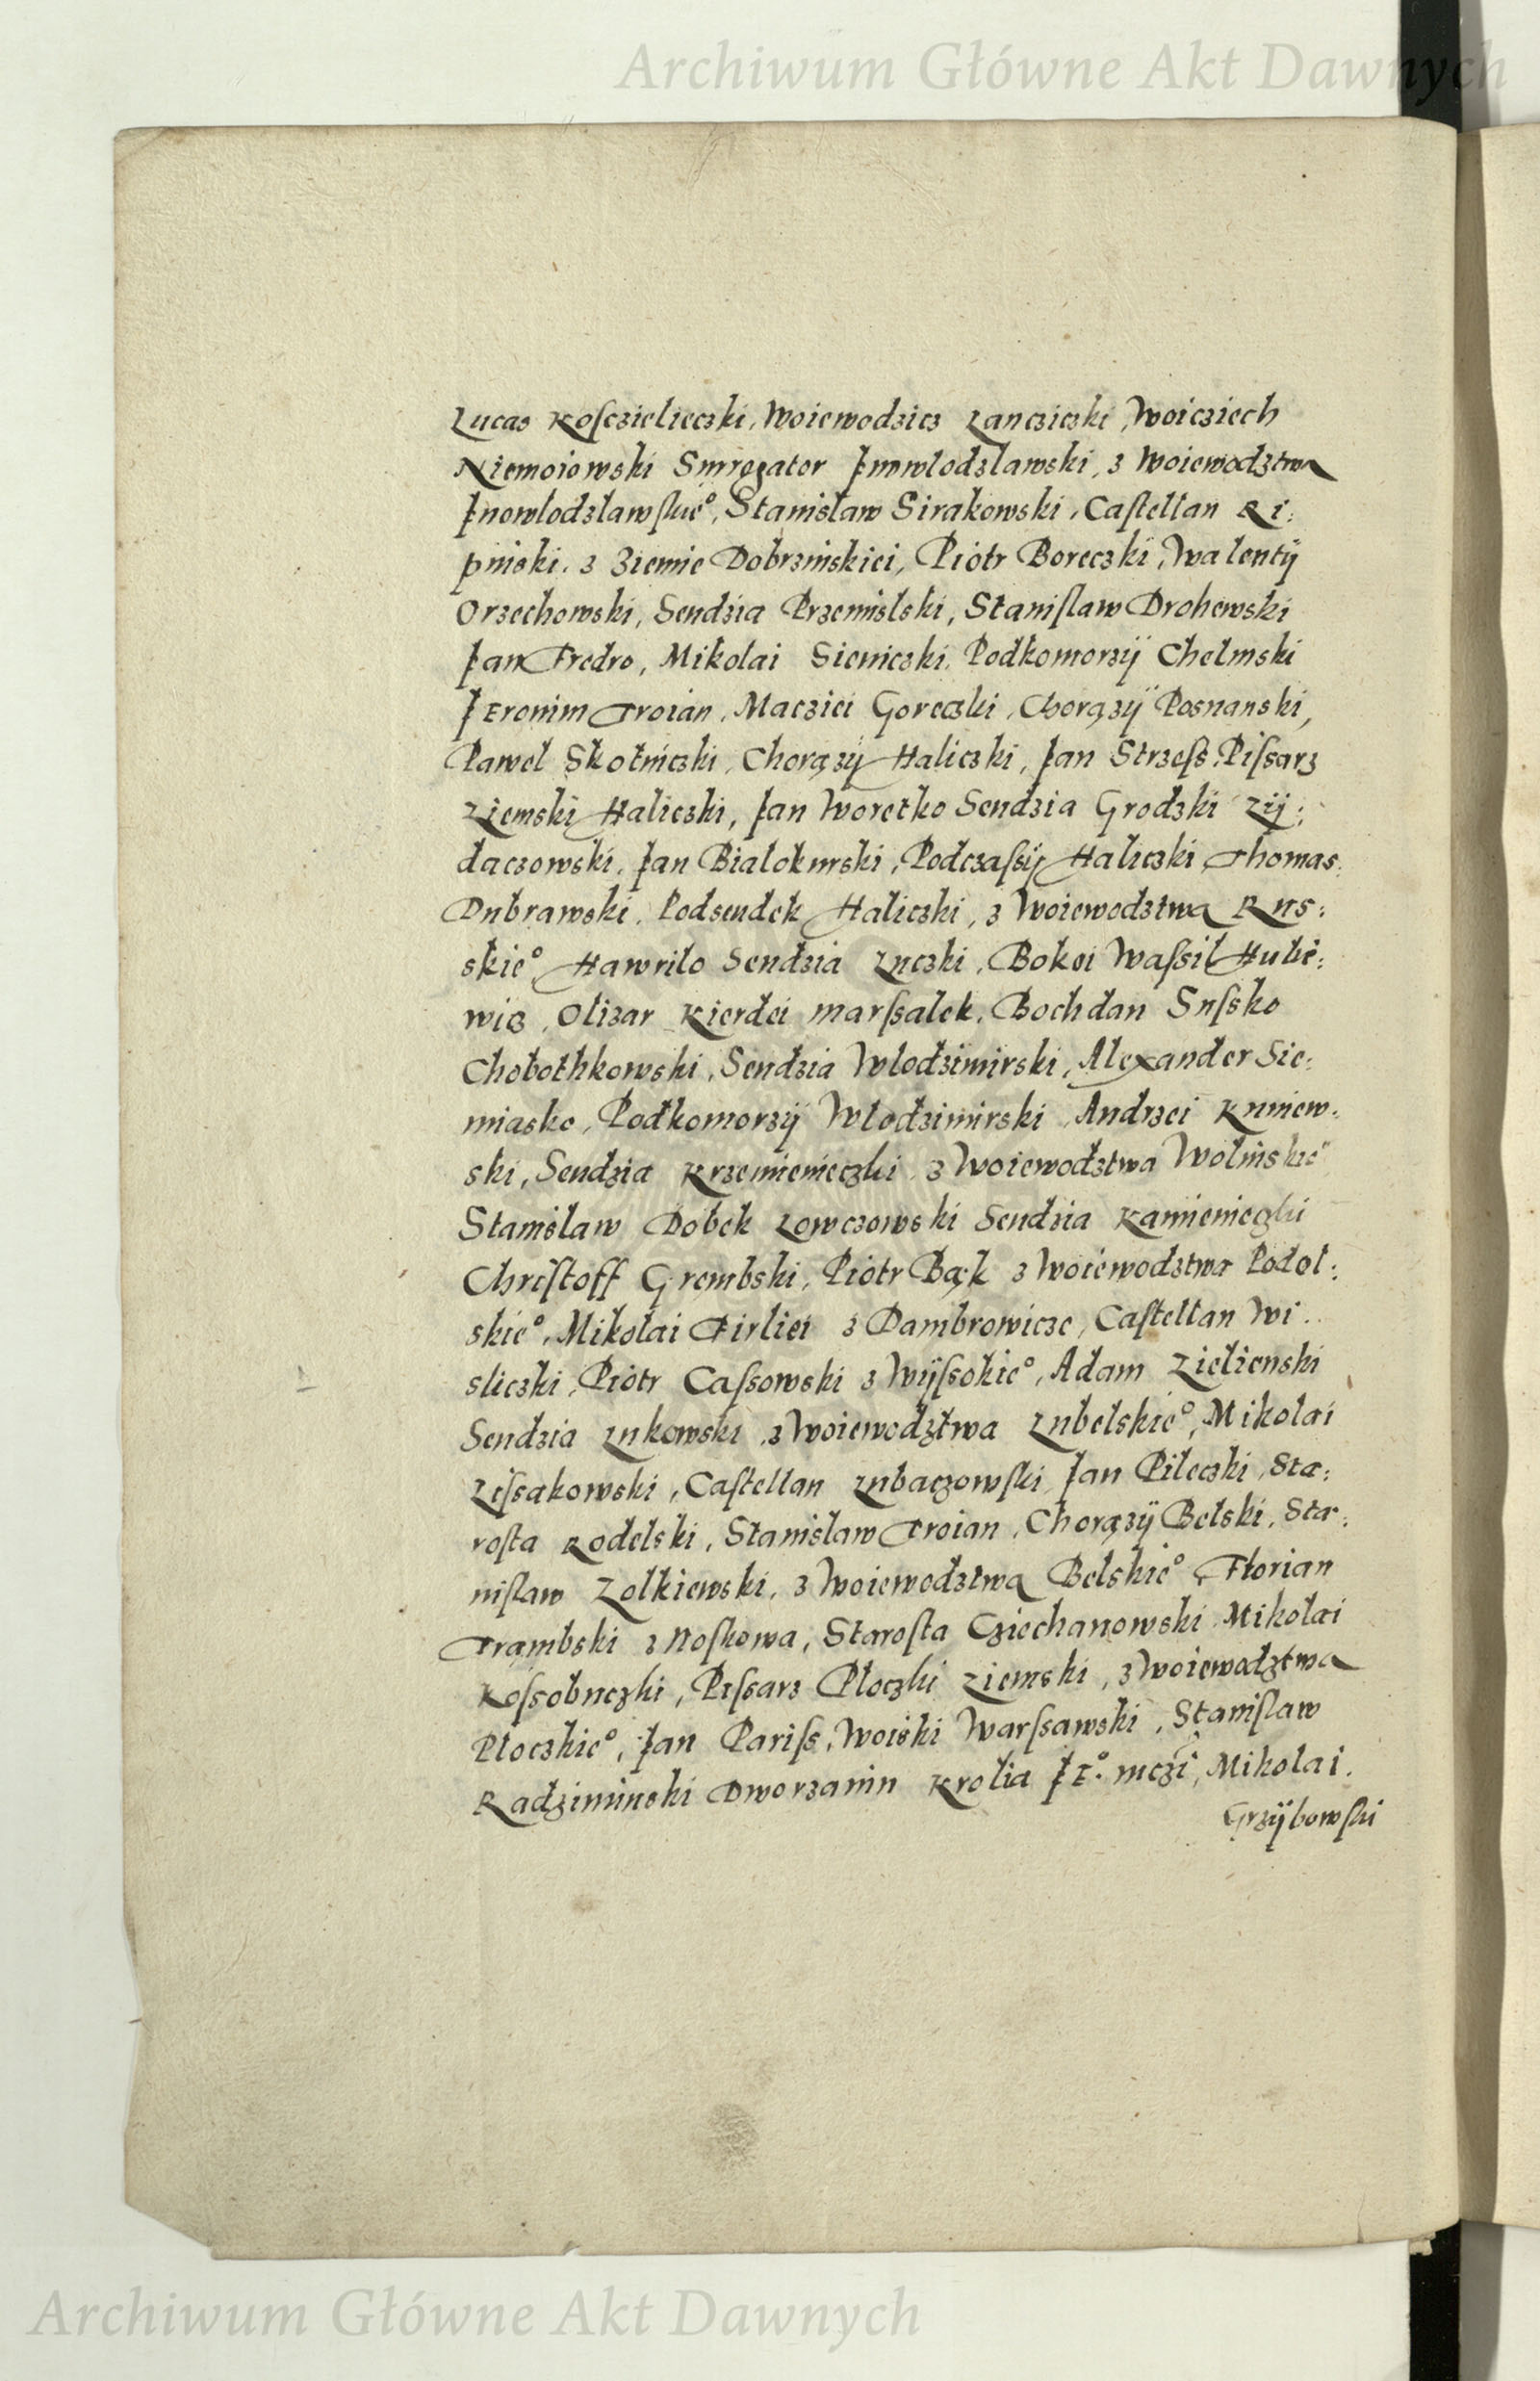 Archiwum Główne Akt Dawnych
Lucas Kosczielieczki, Woiewodzicz Lancziczki, Woicziech
Niemoiowski Surrogator Jnowlodzlawski, z Woiewodztwa
Jnowlodzlawskie°, Stanislaw Sirakowski, Castellan Ri:
pinski. z Ziemie Dobrzinskiei, Piotr Boreczki, Walentÿ
Orzechowski, Sendzia Przemislski, Stanislaw Drohewski
Jan Fredro, Mikolai Sieniczki, Podkomorzÿ Chelmski
Jeronim Troian, Macziei Goreczki, Chorązÿ Posnanski,
Pawel Skotniczki, Chorązÿ Haliczki, Jan Strzess, Pissarz
Ziemski Haliczki, Jan Woretko Sendzia Grodzki Zÿ:
daczowski, Jan Bialokurski, Podczassÿ Haliczki, Thomas
Dubrawski, Podsendek Haliczki, z Woiewodztwa Rus:
skie°, Hawrilo Sendzia Luczki, Bokei Wassil Hulie:
wicz, Olizar Kierdei marssalek, Bochdan Sussko
Chobothkowski, Sendzia Wlodzimirski, Alexander Sie:
miasko, Podkomorzÿ Wlodzimirski, Andrzei Kuniew:
ski, Sendzia Krzemienieczki z Woiewodztwa Wolinskie°
Stanislaw Dobek Lowczowski Sendzia Kamienieczki
Christoff Grembski, Piotr Bąk z Woiewodztwa Podol:
skie°, Mikolai Firliei z Dambrowicze, Castellan Wi:
sliczki, Piotr Cassowski z Wÿssokie°, Adam Zielienski
Sendzia Lukowski z Woiewodztwa Lubelskie°, Mikolai
Lissakowski, Castellan Lubaczowski, Jan Pileczki, Sta:
rosta Rodelski, Stanislaw Troian, Chorązÿ Belski, Sta:
nislaw Zolkiewski, z Woiewodztwa Belskie°, Florian
Trambski z Noskowa, Starosta Cziechanowski Mikolai
Kossobuczki, Pissarz Ploczki Ziemski, z Woiewodztwa
Ploczkie°, Jan Pariss, Woiski Warssawski, Stanislaw
Radziminski Dworzanin Krolia JE° mczi, Mikolai
Grzÿbowski
Archiwum Główne Akt Dawnych